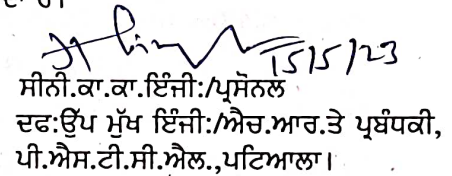 15/5/23
ਸੀਨੀ.ਕਾ.ਕਾ.ਇੰਜੀ:/ਪ੍ਰਸੋਨਲ
ਦਫ:ਉੱਪ ਮੁੱਖ ਇੰਜੀ:/ਐਚ.ਆਰ.ਤੇ ਪ੍ਰਬੰਧਕੀ,
ਪੀ.ਐਸ.ਟੀ.ਸੀ.ਐਲ.,ਪਟਿਆਲਾ।